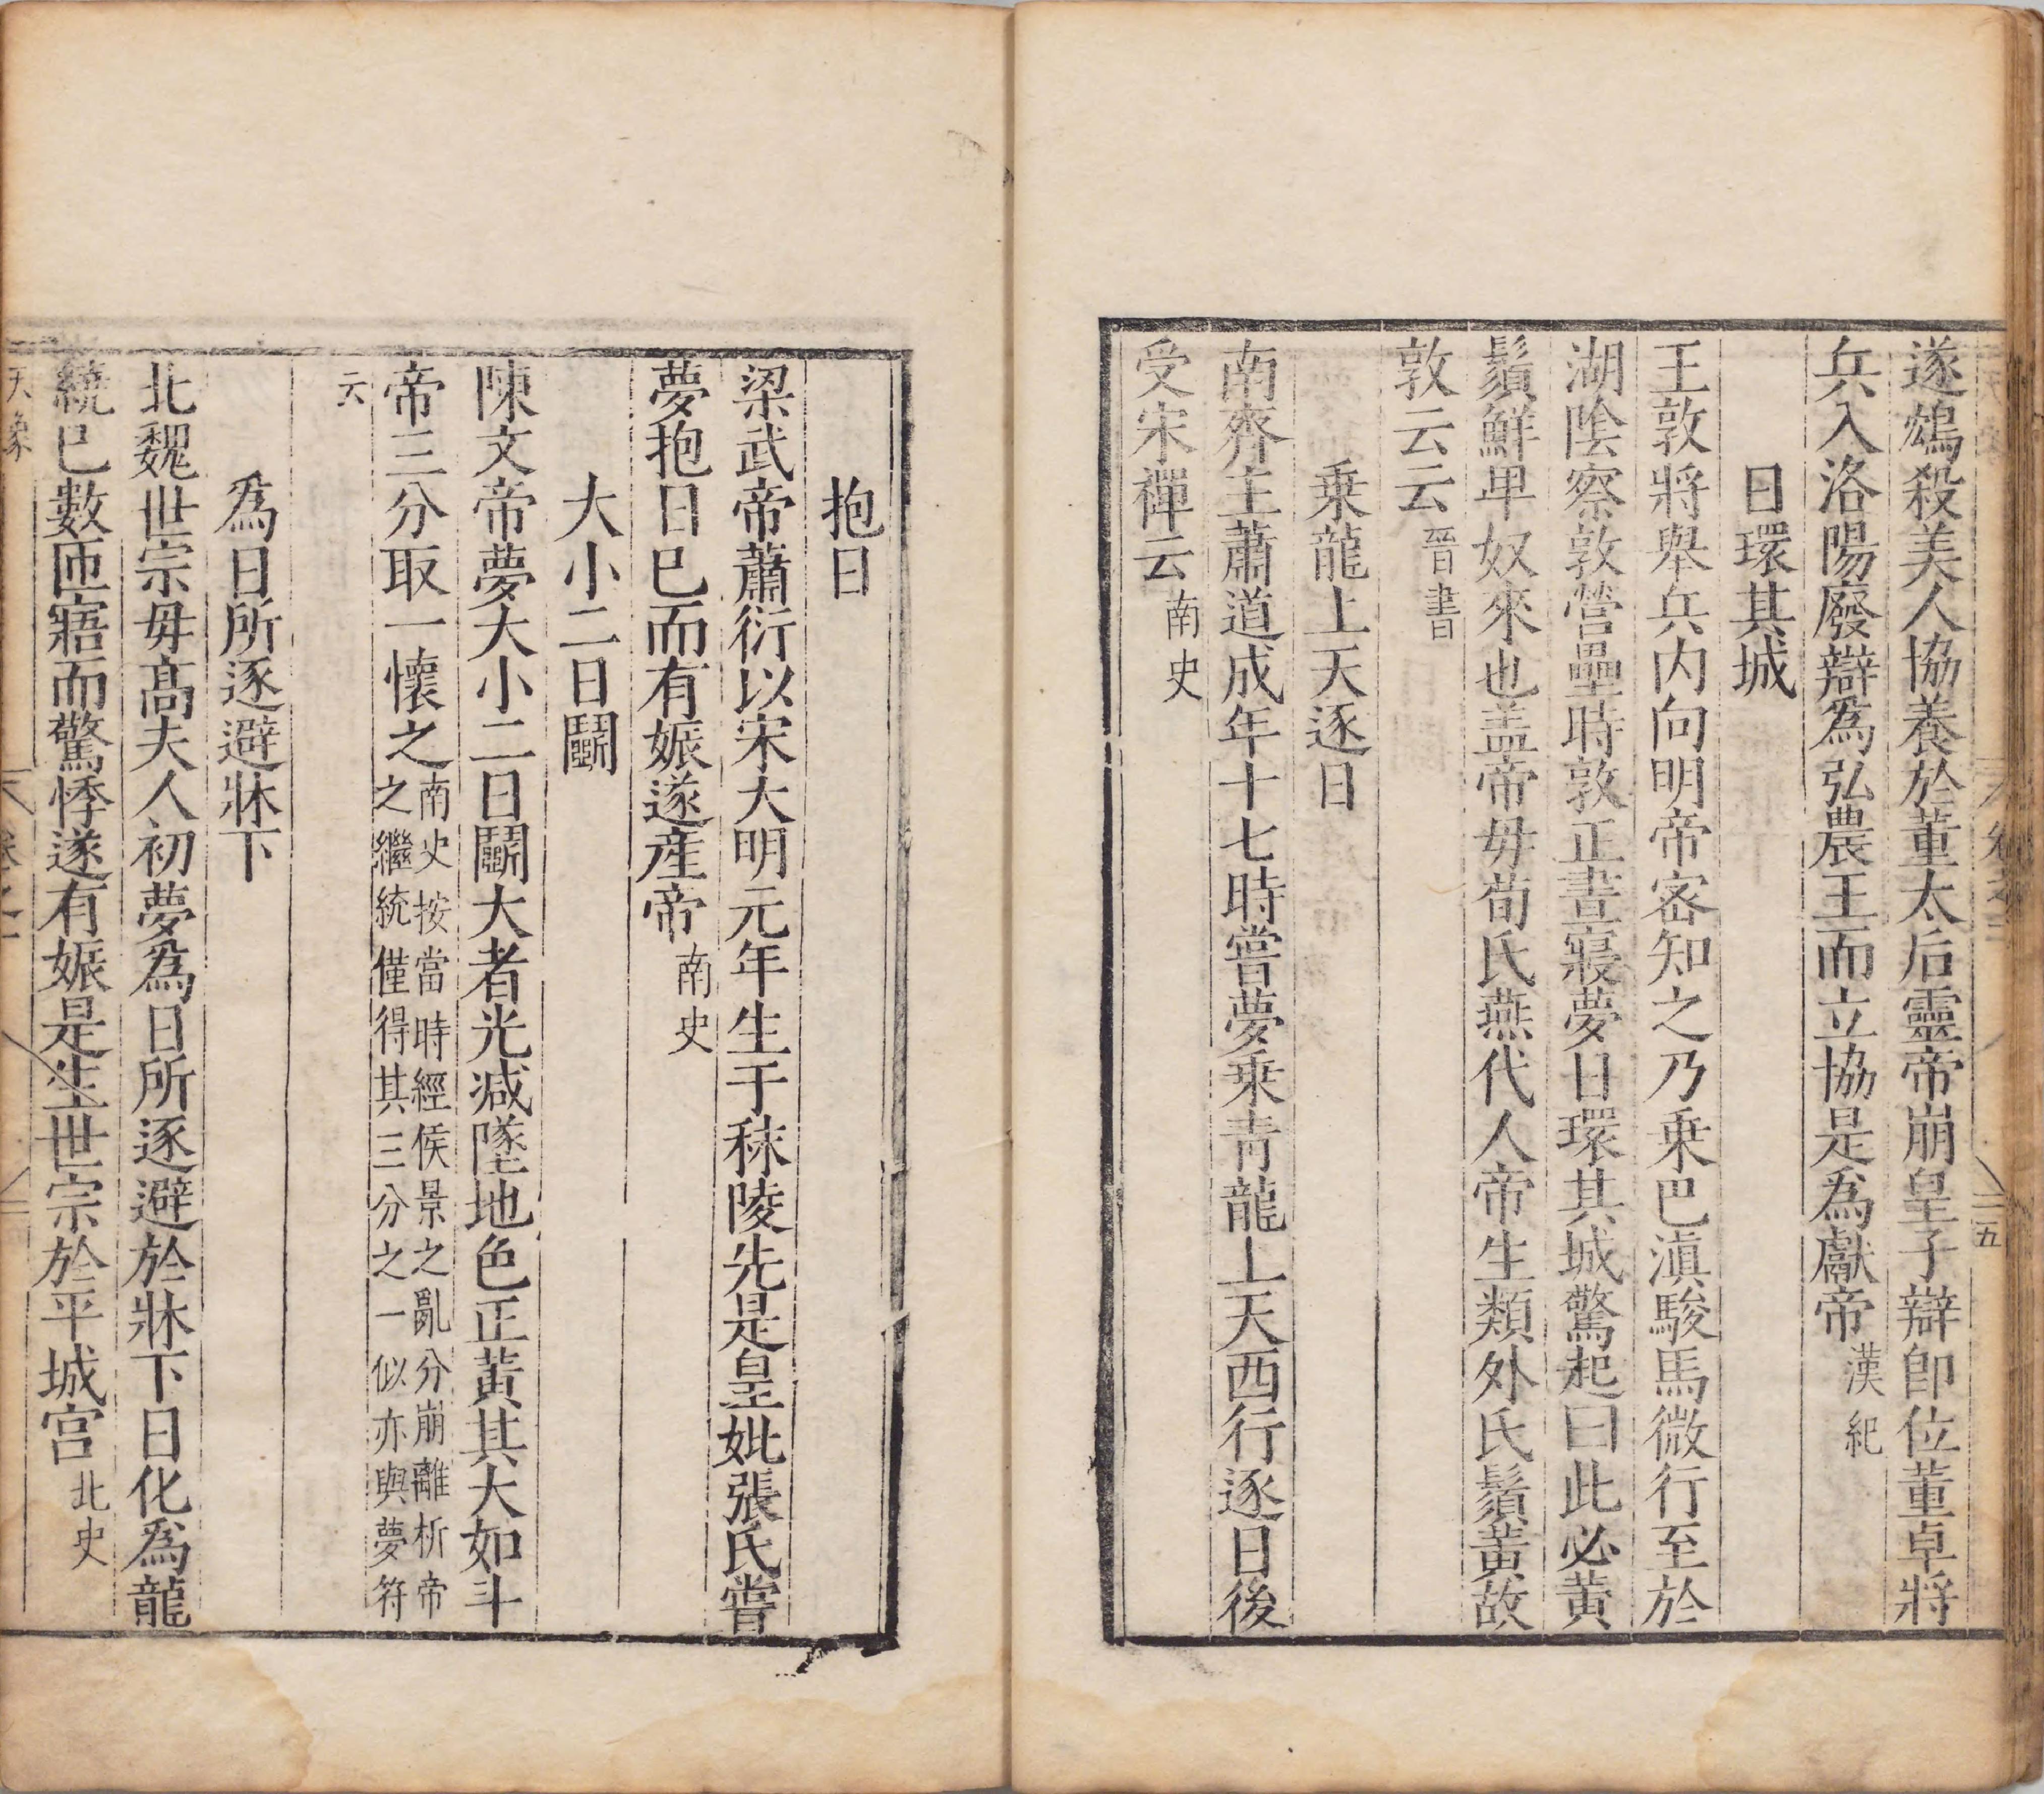 遂鴆殺美人協養於董太后靈帝崩皇子辯即位董卓將
兵入洛陽廢辯為弘農王而立協是為獻帝漢紀
日環其城
王敦將舉兵内向明帝密知之乃乗巴滇駿馬微行至於
湖陰察敦營壘時敦正晝寢夢日環其城驚起曰此必黄
鬚鮮卑奴來也盖帝毋荀氏燕代人帝生類外氏鬚黄故
敦云云晉書
乗龍上天逐日
南齊主蕭道成年十七時嘗夢乗青龍上天西行逐日後
受宋禪云南史
抱日
梁武帝蕭衍以宋大明元年生于秣陵先是皇妣張氏嘗
夢抱日巳而有娠遂産帝南史
大小二日鬭
陳文帝夢大小二日鬭大者光减墜地色正黄其大如斗
帝三分取一懷之南史按當時經侯景之亂分崩離析帝
之繼統僅得其三分之一似亦與夢符
云
爲日所逐避牀下
北魏世宗毋髙夫人初夢爲日所逐避於牀下日化爲龍
繞巳數匝寤而驚悸遂有娠是生世宗於平城宫北史
天象